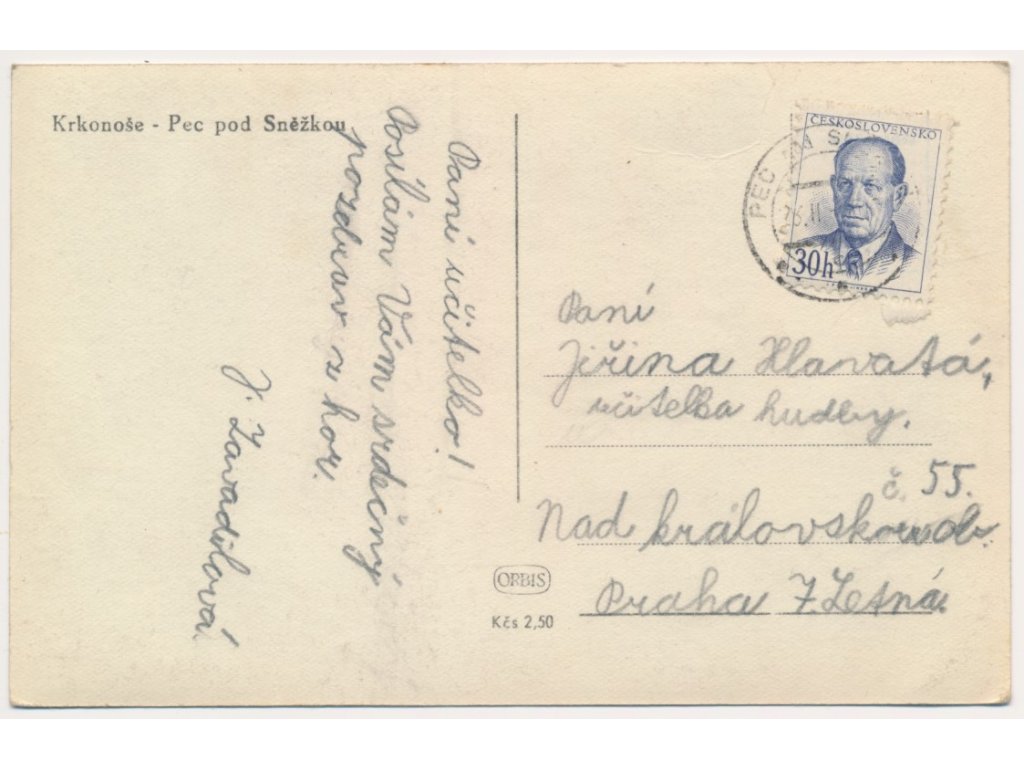 Krkonoše - Pec pod Sněžkou
Paní učitelko!
Posílám Vám srdečný
pozdrav z hor.
J. Zavadilová.
ČESKOSLOVENSKO
30h
PEC
Paní
Jiřina Hlavatá,
učitelka hudby.
č. 55.
Nad královskou ob.
Praha 7. Letná.
ORBIS
Kčs 2,50